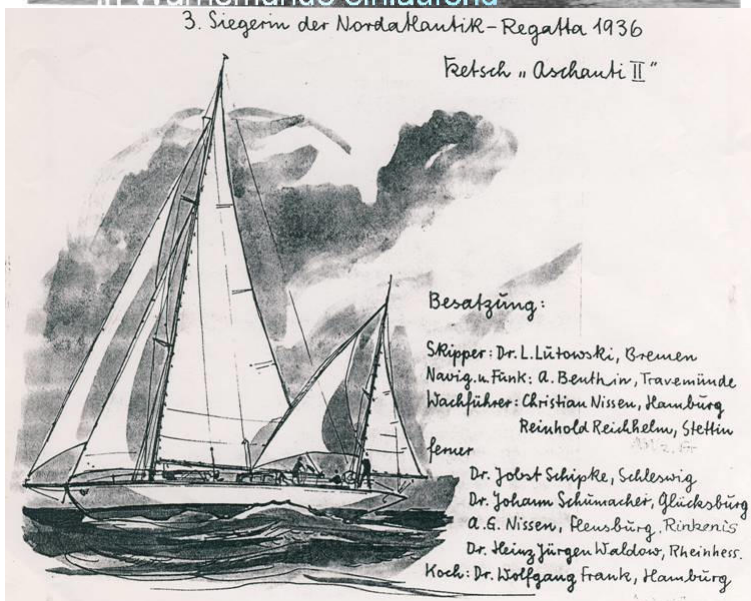 in Warnemünde einlaufend
3. Siegerin der Nordatlantik-Regatta 1936
Ketsch „Aschanti II"
Besatzung:
Skipper: Dr. L. Lütowski, Bremen
Navig. u. Funk: A. Benthin, Travemünde
Wachführer: Christian Nissen, Hamburg
Reinhold Reichhelm, Stettin
ferner
Dr. Jobst Schipke, Schleswig
Dr. Johann Schümacher, Glücksburg
A.G. Nissen, Flensburg, Rinkenis
Dr. Heinz Jürgen Waldow, Rheinhess.
Koch: Dr. Wolfgang Frank, Hamburg